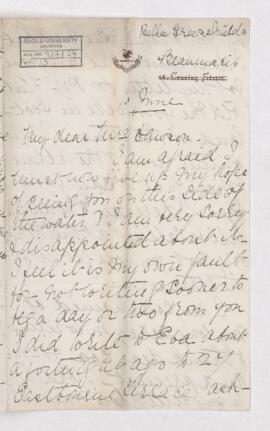 Bella Greenshields
ARCHIVES
Beaumaris
June
My dear Mrs Dawson
I am afraid I
must now give up my hope
of seeing you on this side of
the water & I am very sorry
& disappointed about it.
I feel it is my own fault
for not writing sooner to
beg a day or two from you
I did write to Eva about
a fortnight ago to 27
Eastbourne Terrace ask-